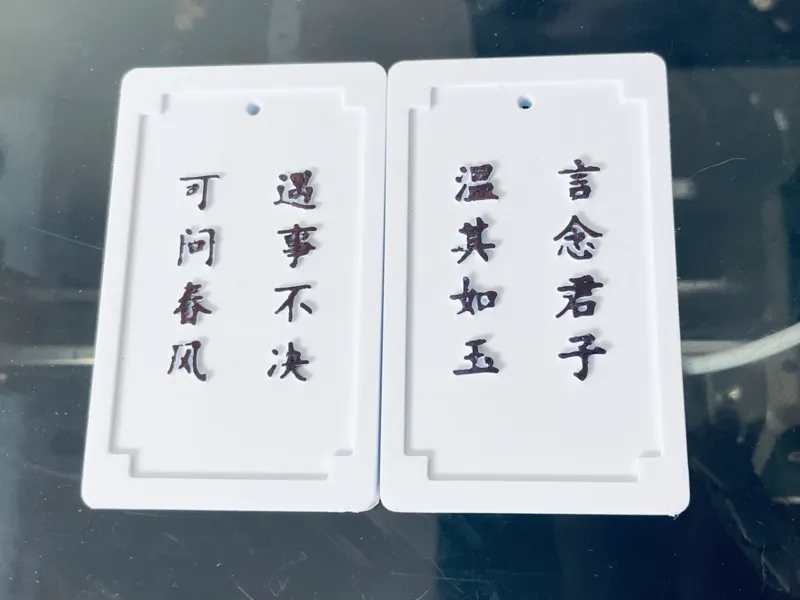 言念君子
温其如玉
遇事不决
可问春风